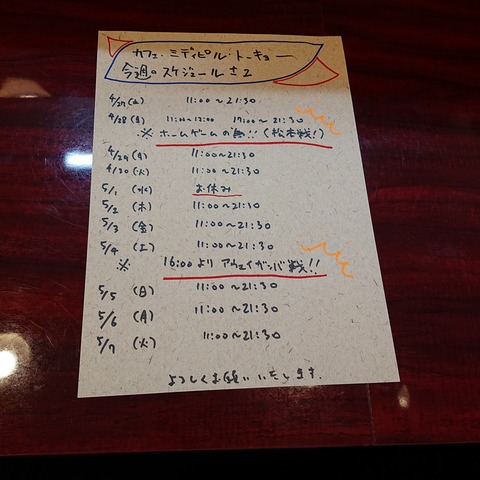 カフェ・ミディピル・トーキョー
今週のスケジュール±2
4/27(土) 11:00〜21:30
4/28(日) 11:00〜12:00 17:00〜21:30
※ホームゲームの為!!(松本戦!)
4/29(月) 11:00〜21:30
4/30(火) 11:00〜21:30
5/1(水) お休み
5/2(木) 11:00〜21:30
5/3(金) 11:00〜21:30
5/4(土) 11:00〜21:30
※ 16:00よりアウェイガンバ戦!!
5/5(日) 11:00〜21:30
5/6(月) 11:00〜21:30
5/7(火) 11:00〜21:30
よろしくお願いいたします.